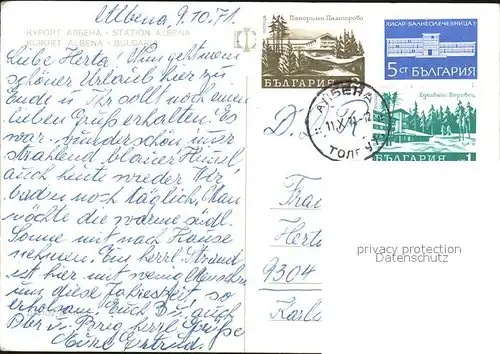 Albena, 9.10.71.
КУРОРТ АЛБЕНА - STATION ALBENA
KURORT ALBENA - BULGARIA
Liebe Herta! Nun geht mein
schöner Urlaub hier zu
Ende u. Ihr sollt noch einen
lieben Gruß erhalten. Es
war wunderschön immer
strahlend blauer Himmel
auch heute wieder. Wir
baden noch täglich, Man
möchte die warme südl.
Sonne mit nach Hause
nehmen. Ein herrl. Strand
ist hier mit wenig Menschen
um diese Jahreszeit, so
erholsam. Euch auch
herzl. Grüße
Eure Gertrud.
Панорилм Пампорово
БЪЛГАРИЯ
ХИСАР-БАЛНЕОЛЕЧЕБНИЦА
5 СТ БЪЛГАРИЯ
Еделвайс Боровец
БЪЛГАРИЯ 1
АЛБЕНА
11.X.71-12
D. D. R.
Frau
9304
privacy protection
Datenschutz